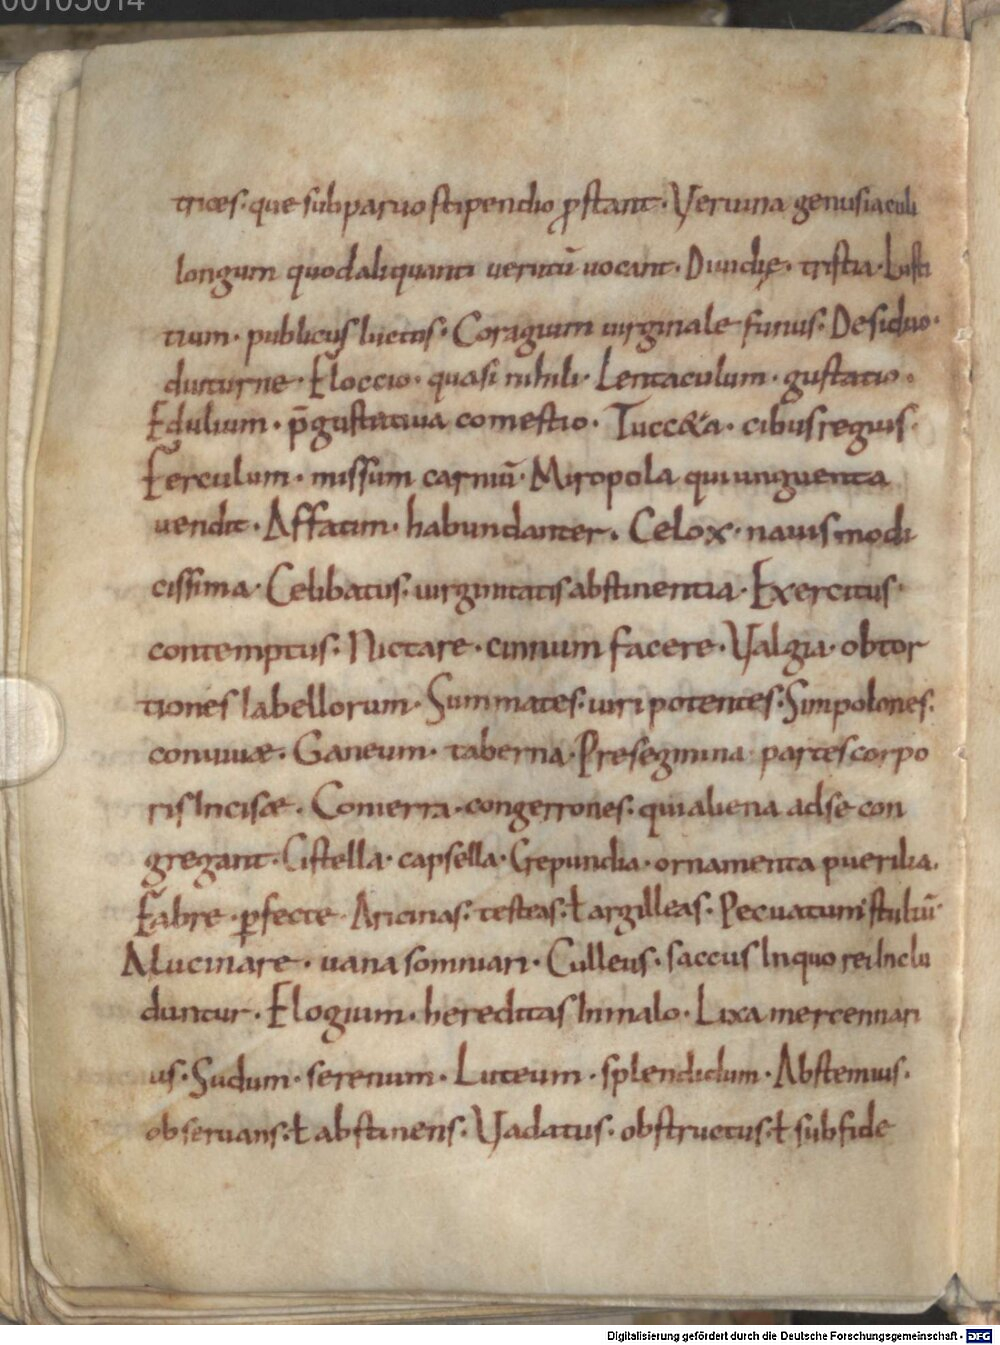 00105014
trices· que sub paruo stipendio ꝓstant· Veruina genus iaculi
longum quod aliquanti uerutū uocant· Diuidię· tristia· Lusti
tium· publicus luctus· Coragium uirginale funus· Desiduo·
diuturne· Floccio· quasi nihili· Lentaculum· gustatio·
Edulium· p̄gustatiua comestio· Tucc&a· cibus regius·
Ferculum· missum carniū· Miropola qui unguenta
uendit· Affatim· habundanter· Celox· nauis modi
cissima· Celibatus· uirginitatis abstinentia· Exercitus·
contemptus· Nictare· cinnum facere· Valgia· obtor
tiones labellorum· Summates· uiri potentes· Simpolones·
conuiuæ· Ganeum· taberna· Presegmina· partes corpo
ris Incisæ· Conierra· congerrones· qui aliena ad se con
gregant· Cistella· capsella· Crepundia· ornamenta puerilia·
Fabre· ꝑfecte· Aricinas· testeas· ƚ argilleas· Pecuatum· stultū·
Alucinare· uana somniari· Culleus· saccus In quo rei Inclu
duntur· Elogium· hereditas In malo· Lixa mercennari
us· Sudum· serenum· Luteum· splendidum· Abstemius·
obseruans· ƚ abstinens· Vadatus· obstructus· ƚ sub fide
Digitalisierung gefördert durch die Deutsche Forschungsgemeinschaft - DFG